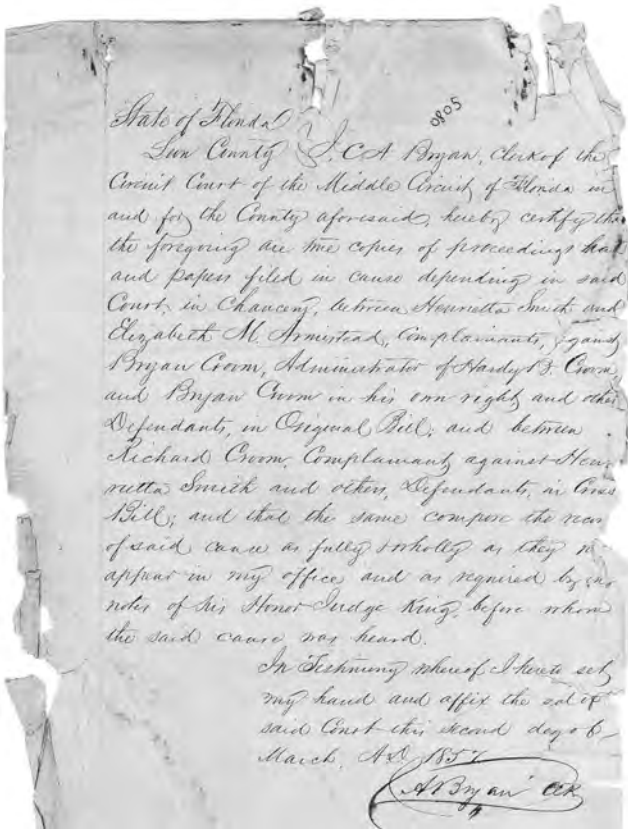 State of Florida
0805
Leon County } I, C A Bryan, Clerk of the
Circuit Court of the Middle Circuit of Florida in
and for the County aforesaid, hereby certify tha
the foregoing are true copies of proceedings had
and papers filed in cause depending in said
Court, in Chancery, between Henrietta Smith and
Elizabeth M. Armistead, Complainants, against
Bryan Croom, Administrator of Hardy B. Croom,
and Bryan Croom in his own right, and other
Defendants, in Original Bill; and between
Richard Croom, Complainant, against Hen-
rietta Smith and others, Defendants, in Cross
Bill; and that the same compose the recor
of said cause as fully & wholly as they n
appear in my office and as required by
notes of his Honor Judge King, before whom
the said cause was heard.
In Testimony whereof I hereto set
my hand and affix the seal of
said Court this second day of
March, A.D. 1857
A Bryan Clk